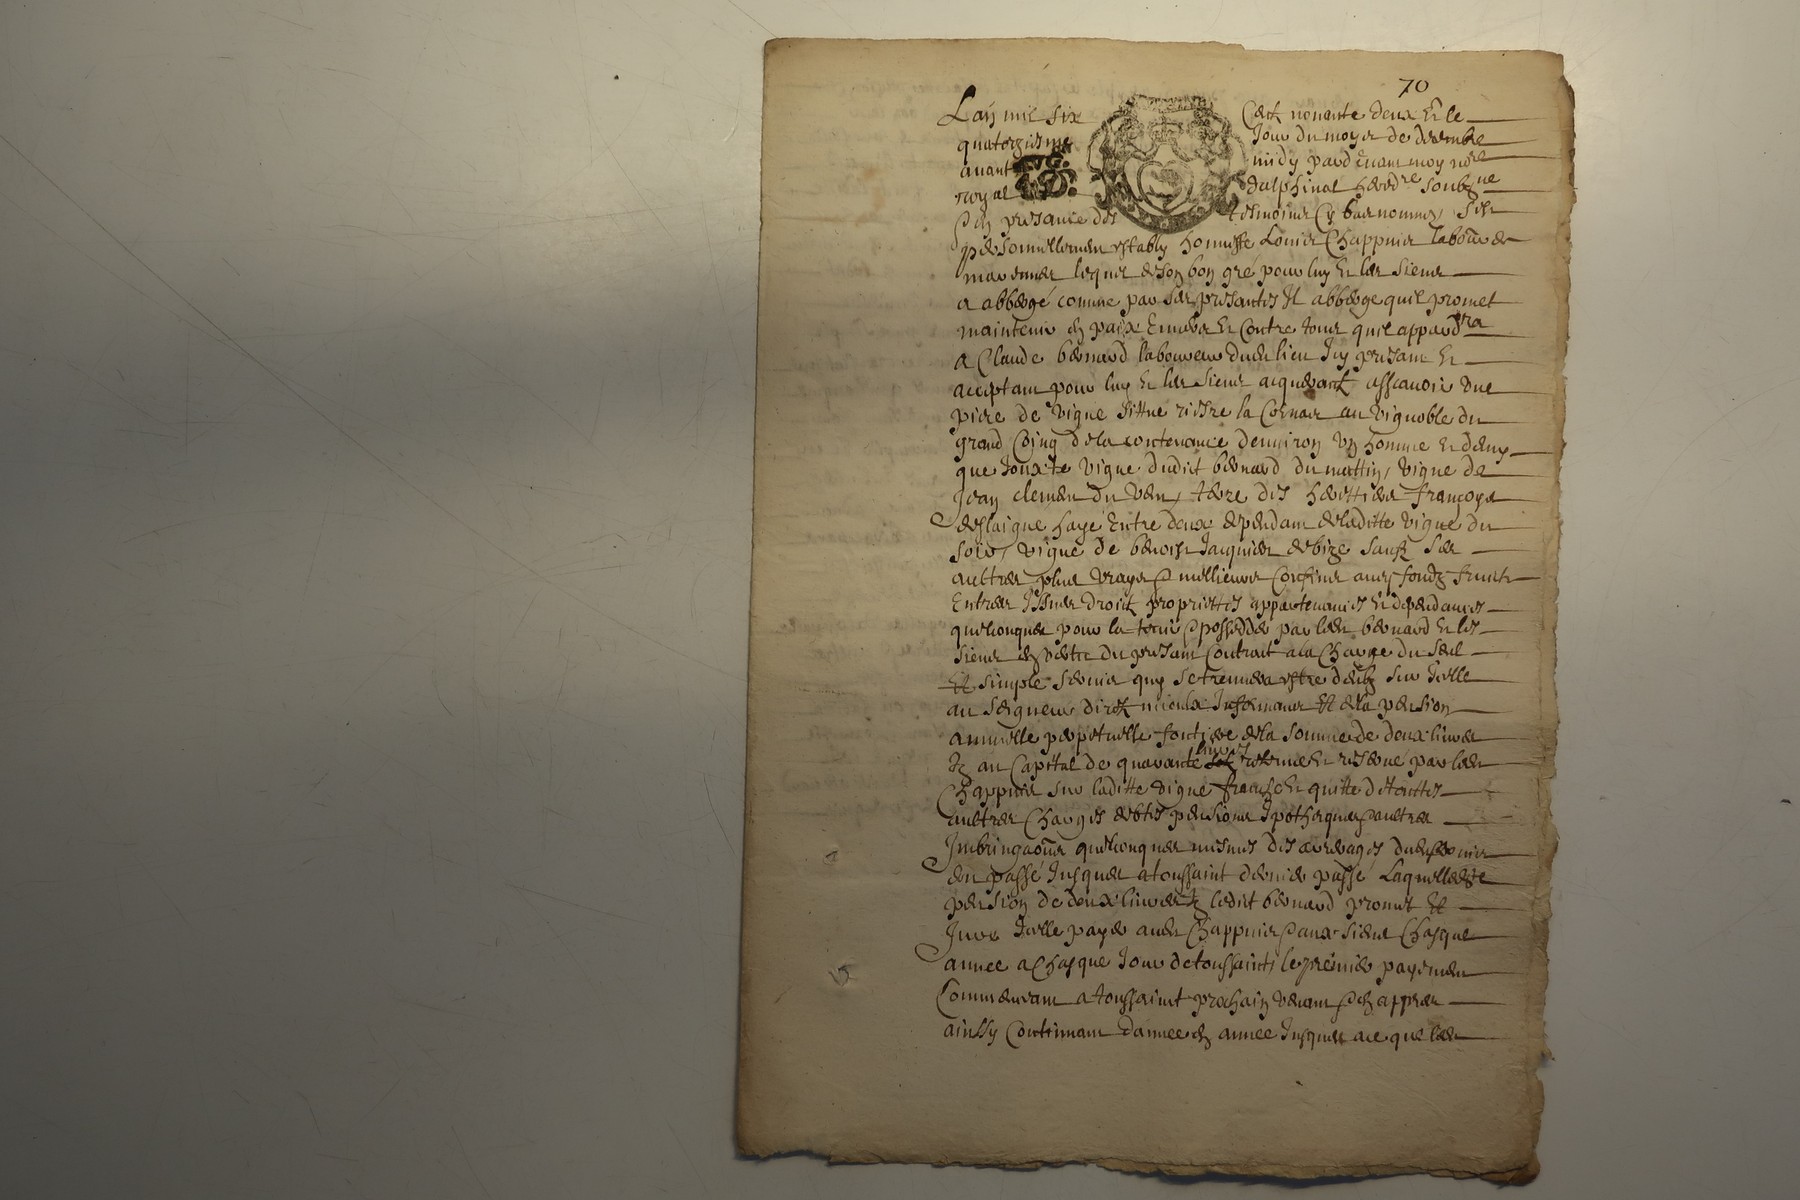 70
Lan mil six Cent nonante deux Et le
quatorziesme Jour du moys de decembre
avant midy pardevant moy nore
royal dalphinal hered.re soubz.ne
Et en presance des tesmoins Cy bas nommes, sest
personnellement estably honneste Louis Chappuis laboureur
lequel de son bon gré pour luy Et les siens
a abbergé comme par ses presantes Il abberge quil promet
maintenir en paix Envers Et Contre tous quil appard.ra
a Claude bernard laboureur dudit lieu Icy presant Et
acceptant pour luy Et les siens acquerant assavoir une
piece de vigne sittue riere la au vignoble du
grand Coing de la contenance denviron un homme Et demy
que Jouxte vigne dudit bernard du mattin, vigne de
Jean clement du vent, terre des herittiers françoys
haye Entre deux dependant de laditte vigne du
soir, vigne de benoist Jacquier de bize sauf ses
aultres plus vrays Et mellieurs Confins avec fondz fruits
Entrees Issues droit proprietés appartenances Et dependances
quelconques pour la tenir Et posseder par ledit bernard Et les
siens en vertu du presant Contrait a la Charge du seul
Et simple servis quy se treuvera estre deub sur Icelle
au seigneur direct mieulx Informant Et de la pension
annuelle perpetuelle fontiere de la somme de deux livres
tz au Capital de quarante livres retenue Et reservé par ledit
Chappuis sur laditte vigne franche Et quitte de touttes
aultres Charges debtes pensions Ipotheques Et aultres
Imbringaõns quelconques mesmes des arrerages dudit servis
du passé Jusques a toussaint dernier passé Laquelle ditte
pension de deux livres tz ledit bernard promet Et
Jure Icelle payer audit Chappuis Et aux siens Chasque
annee a Chasque Jour de toussaint, le premier payement
Commencant a toussaint prochain venant Et en appres
ainsy Continuant dannee en annee Jusques a ce que ledit